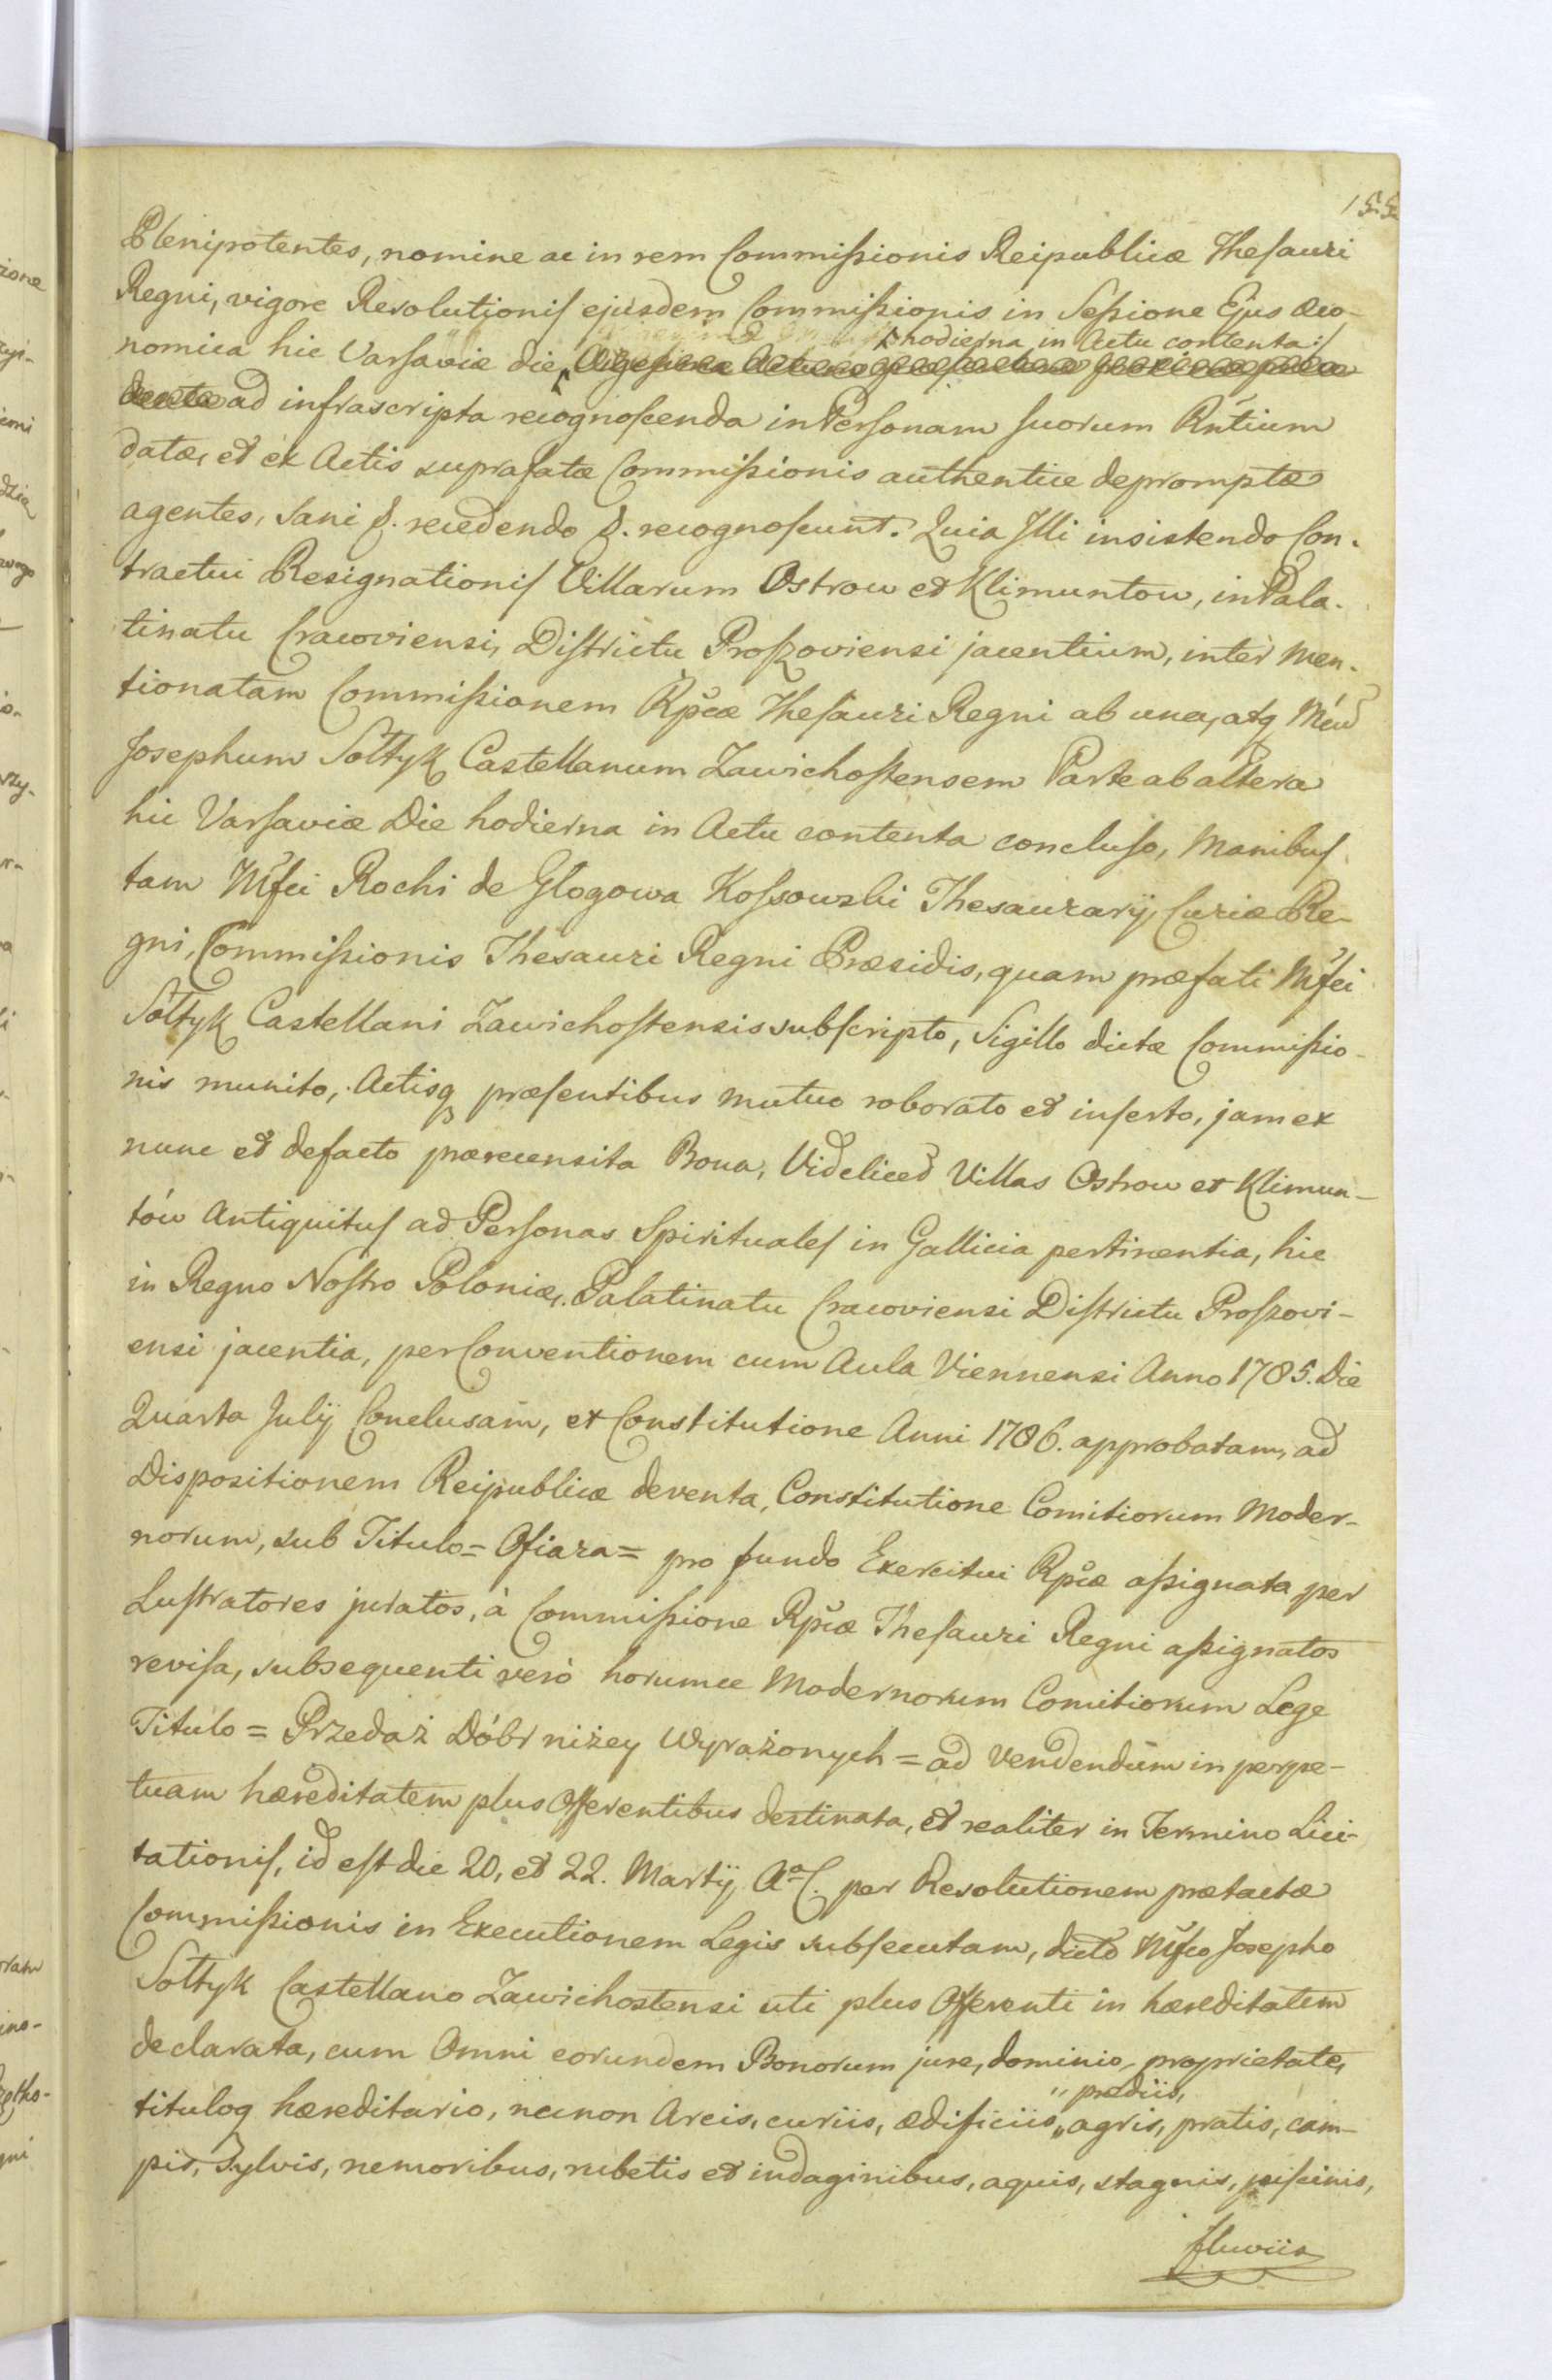 155
Plenipotentes, nomine ac in rem Commißionis Reipublicæ Thesauri
Regni, vigore Resolutionis ejusdem Commißionis in Seßione Ejus Œco-
hodierna in Actu contenta
nomica hic Varsaviæ die
ad infrascripta recognoscenda in Personam suorum Rntium
datæ, et ex Actis suprafatæ Commißionis authentice depromptæ
agentes, sani &. recedendo &. recognoscunt. Quia Illi insistendo Con-
tractui Resignationis Villarum Ostrow et Klimuntow, in Pala-
tinatu Cracoviensi, Districtu Proszoviensi jacentium, inter Men-
tionatam Commißionem Rpcæ Thesauri Regni ab una, atq Mcum
Josephum Sołtyk Castellanum Zawichostensem Parte ab altera
hic Varsaviæ Die hodierna in Actu contenta concluso, Manibus
tam Mfci Rochi de Głogowa Kossowski Thesaurarij Curiæ Re-
gni, Commißionis Thesauri Regni Præsidis, quam præfati Mfci
Sołtyk Castellani Zawichostensis subscripto, Sigillo dictæ Commißio-
nis munito, Actisq præsentibus mutuo roborato et inserto, jam ex
nunc et defacto præcensita Bona, Videlicet Villas Ostrow et Klimun-
tów Antiquitus ad Personas Spirituales in Gallicia pertinentia, hic
in Regno Nostro Poloniæ, Palatinatu Cracoviensi Districtu Proszovi-
ensi jacentia, per Conventionem cum Aula Viennensi Anno 1785. Die
Quarta Julij Conclusam, et Constitutione Anni 1786. approbatam, ad
Dispositionem Reipublicæ deventa, Constitutione Comitiorum Moder-
norum, sub Titulo = Ofiara = pro fundo Exercitui Rpcæ aßignata per
Lustratores juratos, à Commißione Rpcæ Thesauri Regni aßignatos
revisa, subsequenti verò horumce Modernorum Comitiorum Lege
Titulo = Przedaż Dóbr niżey Wyrażonych = ad Vendendum in perpe-
tuam hæreditatem plus Offerentibus destinata, et realiter in Termino Lici-
tationis, id est die 20, et 22. Martij, Aº C. per Resolutionem prætactæ
Commißionis in Executionem Legis subsecutam, dicto Mfco Josepho
Sołtyk Castellano Zawichostensi uti plus Offerenti in hæreditatem
declarata, cum Omni eorundem Bonorum jure, dominio, proprietate,
" prædiis,
tituloq hæreditario, necnon Arcis, curiis, ædificiis," agris, pratis, cam-
pis, Sylvis, nemoribus, rubetis et indaginibus, aquis, stagnis, piscinis,
fluviis